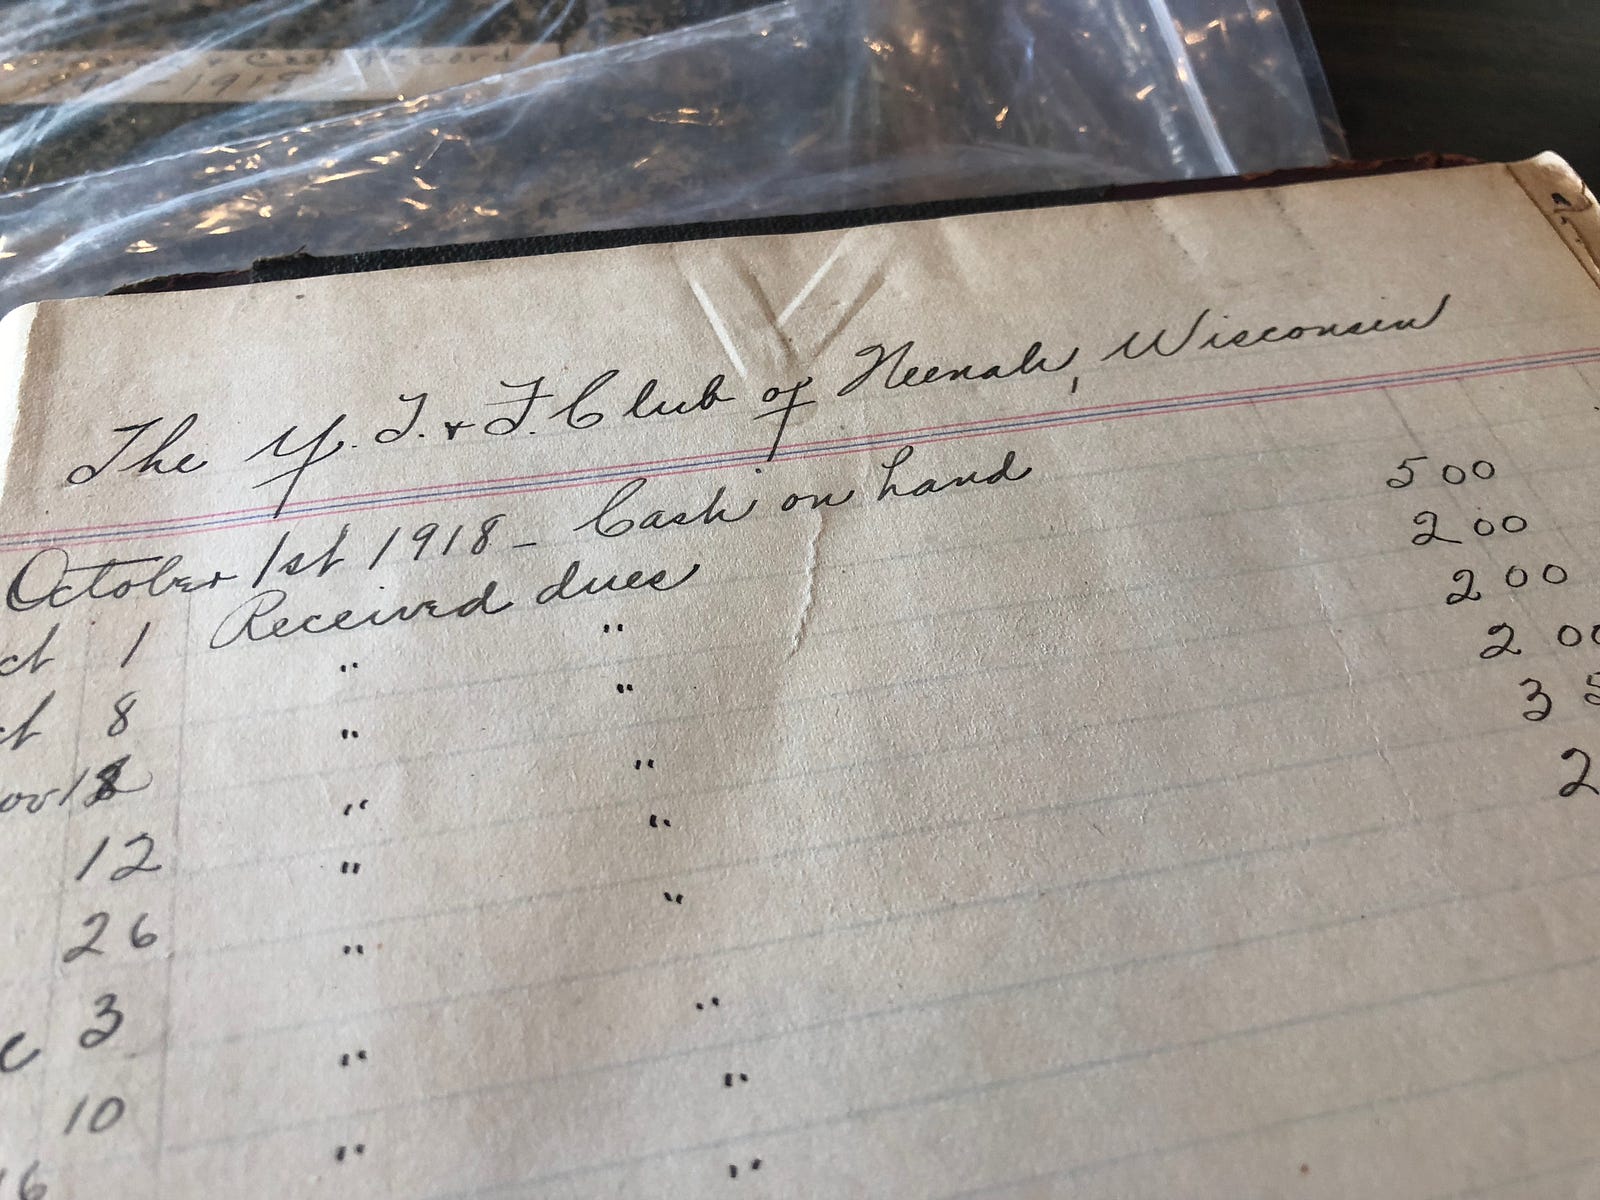 Record
1918
The Y. T. & F. Club of Neenah, Wisconsin
October 1st 1918 - Cash on hand 5 00
ct 1 Received dues 2 00
ct 8 " " 2 00
ov 12 " " 2 00
12 " " 3 5
26 " " 2
c 3 " "
10 " "
16 " "